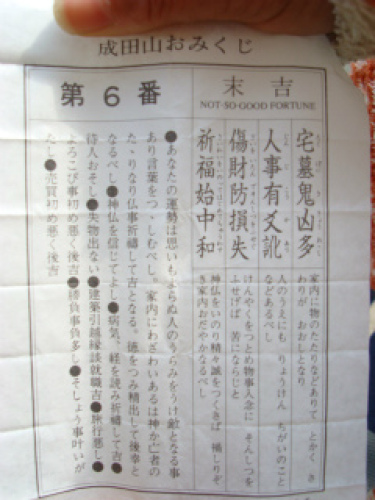 成田山おみくじ
末吉
NOT-SO GOOD FORTUNE
第６番
宅墓鬼凶多
家内に物のたたりなどありて とかく さ
わりが おおしとなり
人事有爻訛
人のうえにも りょうけん ちがいのこと
などあるべし
傷財防損失
けんやくをつとめ物事入念に そんしつを
ふせげば 苦にならじと
祈福始中和
神仏をいのり精々誠をつくさば 禍しりぞ
き家内おだやかなるべし
●あなたの運勢は思いもよらぬ人のうらみをうけ敵となる事
あり言葉をつゝしむべし。家内にわざわいあるは神か亡者の
たゝりなり仏事祈禱して吉となる。徳をつみ精出して後幸と
なるべし●神仏を信じてよし●病気、経を読み祈禱して吉●
待人おそし●失物出ない●建築引越縁談就職吉●旅行悪し●
よろこび事初め悪く後吉●勝負事負多し●そしょう事叶いが
たし●売買初め悪く後吉